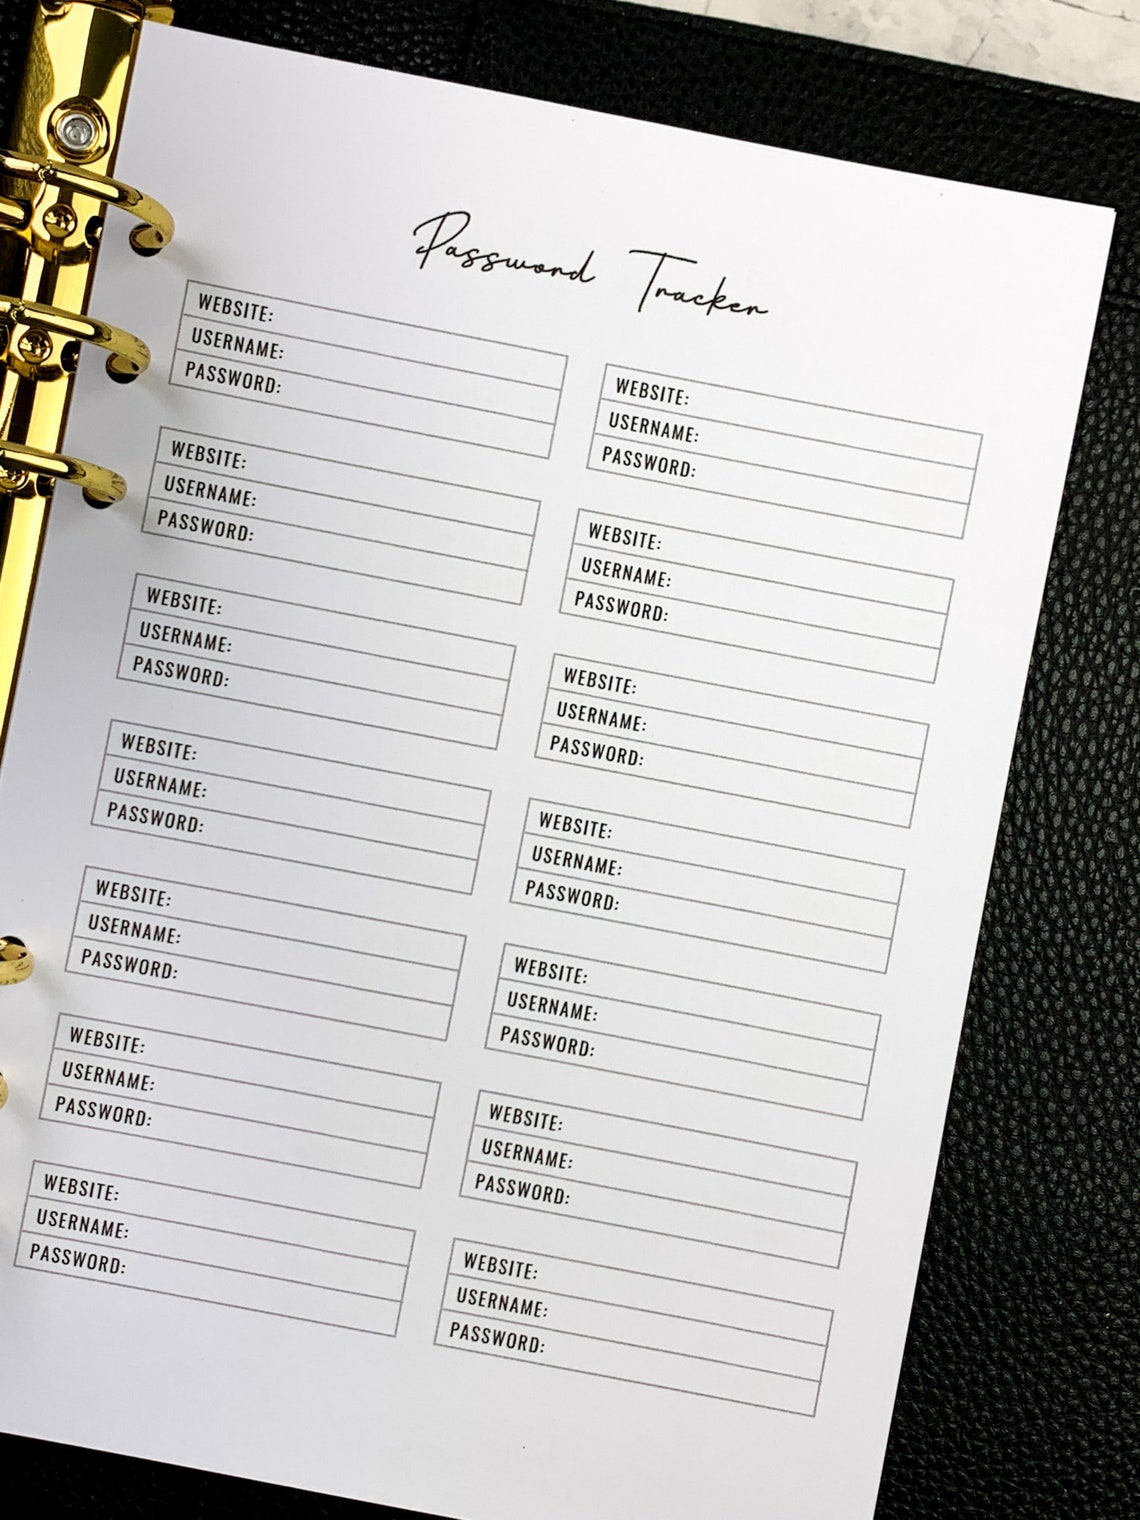 Password Tracker
WEBSITE:
USERNAME:
PASSWORD:
WEBSITE:
USERNAME:
PASSWORD:
WEBSITE:
USERNAME:
PASSWORD:
WEBSITE:
USERNAME:
PASSWORD:
WEBSITE:
USERNAME:
PASSWORD:
WEBSITE:
USERNAME:
PASSWORD:
WEBSITE:
USERNAME:
PASSWORD:
WEBSITE:
USERNAME:
PASSWORD:
WEBSITE:
USERNAME:
PASSWORD:
WEBSITE:
USERNAME:
PASSWORD:
WEBSITE:
USERNAME:
PASSWORD:
WEBSITE:
USERNAME:
PASSWORD:
WEBSITE:
USERNAME:
PASSWORD:
WEBSITE:
USERNAME:
PASSWORD: